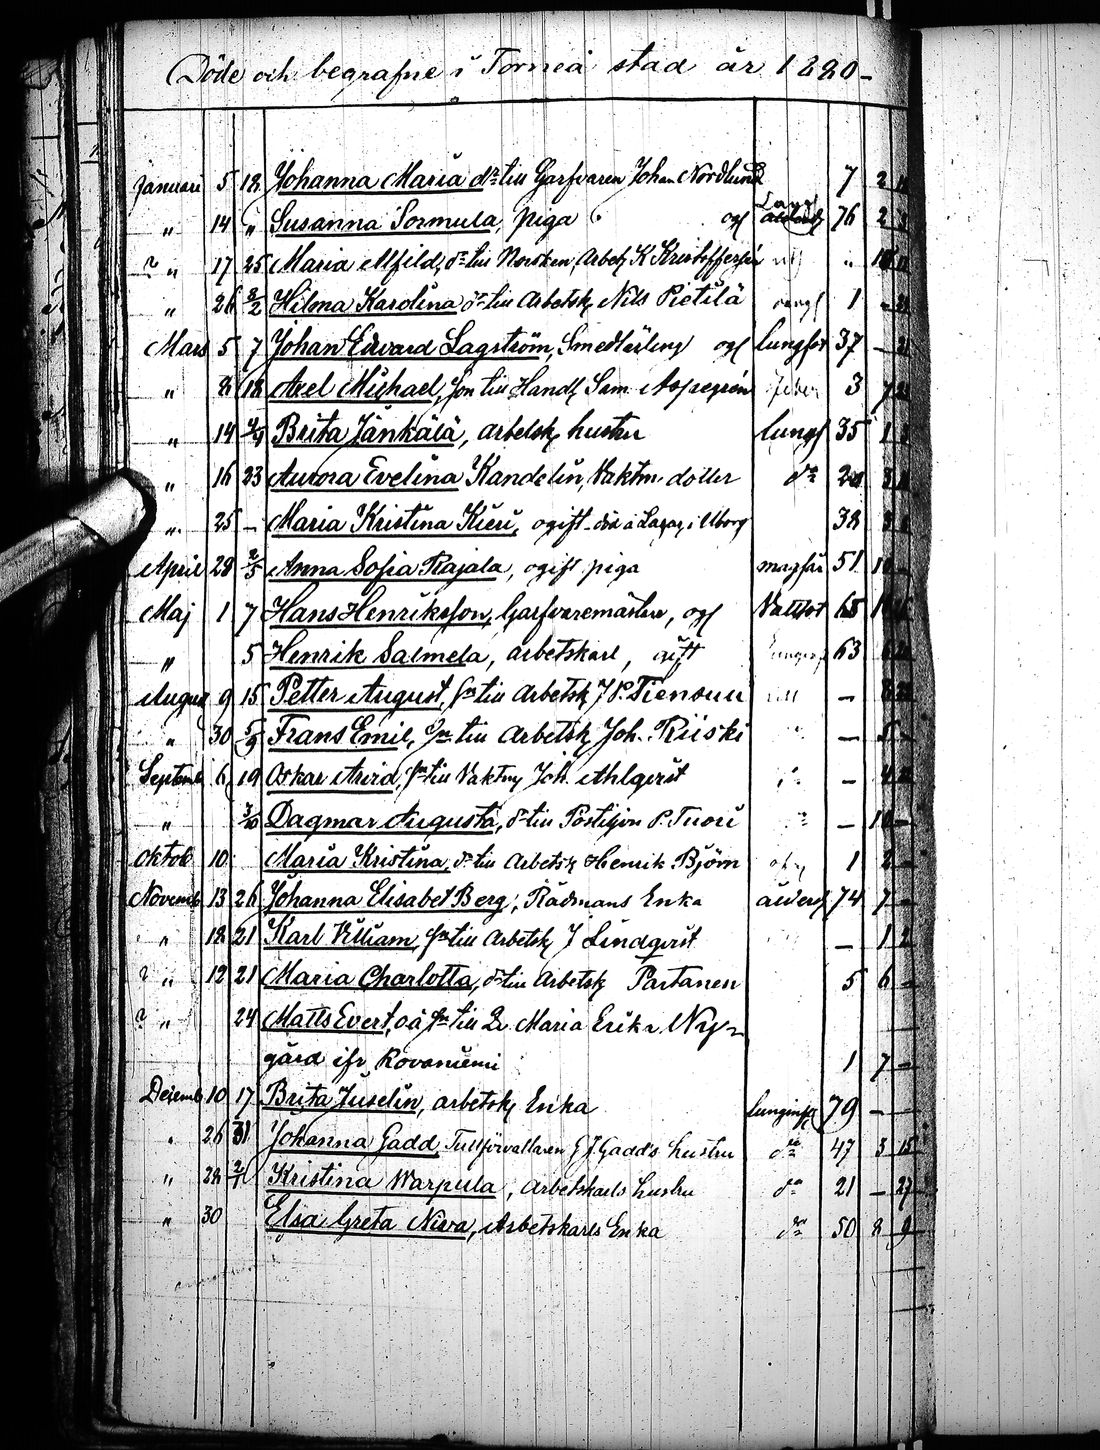 Döde och begrafne i Torneå stad år 1880 –
Januari 5 18 Johanna Maria dr till Garfvaren Johan Nordlund 7 2
" 14 " Susanna Sormula, piga og 76 2
? " 17 25 Maria Alfild, dr till Norsken, Arbetz K Kristoffersen "
" 26 8/2 Hilma Karolina dr till Arbetsk Nils Pietilä 1 –
Mars 5 7 Johan Edvard Lagström, Smedlärling og lungsot 37 –
" 8 18 Axel Michael, son till Handl Sam Aspegrén 3 7
" 14 2/4 Brita Jänkälä, arbetsk hustru lungs 35 1
" 16 23 Aurora Evelina Kandelin, Vaktm dotter do 3
" 25 – Maria Kristina Kieri, ogift död å Lazaz i Uborg 38 3
April 28 2/5 Anna Sofia Rajala, ogift piga 51 10 –
Maj 1 7 Hans Henriksson, Garfvaremästare, og Vattsot
" 5 Henrik Salmela, arbetskarl, gift 63
August 9 15 Petter August, sn till Arbetsk J P. Tiensuu – 8
" 30 5/9 Frans Emil, sn till Arbetsk Joh. Riiski – 5 –
Septemb 6 19 Oskar Arvid, sn till Vaktm Joh. Ahlqvist – 4
" 3/10 Dagmar Augusta, dr till Postiljon P. Tuori – 10 –
Oktob 10 Maria Kristina, dr till Arbetsk Henrik Björn 1 2 –
Novemb 13 26 Johanna Elisabet Berg, Rådmans Enka ålderd 74 7 –
" 18 21 Karl Villiam, sn till Arbetsk J Lindqvist – 1 2
? " 12 21 Maria Charlotta, dr till Arbetsk Partanen 5 6 –
? " 24 Matts Evert, oä sn till Maria Erika Ny-
gård ifr Rovaniemi 1 7 –
Dezemb 10 17 Brita Juselin, arbetsk Enka 79 – –
" 26 31 Johanna Gadd, Tullförvaltaren G J Gadd's hustru do 47 3 15
" 28 2/1 Kristina Warpula, Arbetskarls hustru do 21 – 27
" 30 Elsa Greta Niva, Arbetskarls Enka do 50 8 9